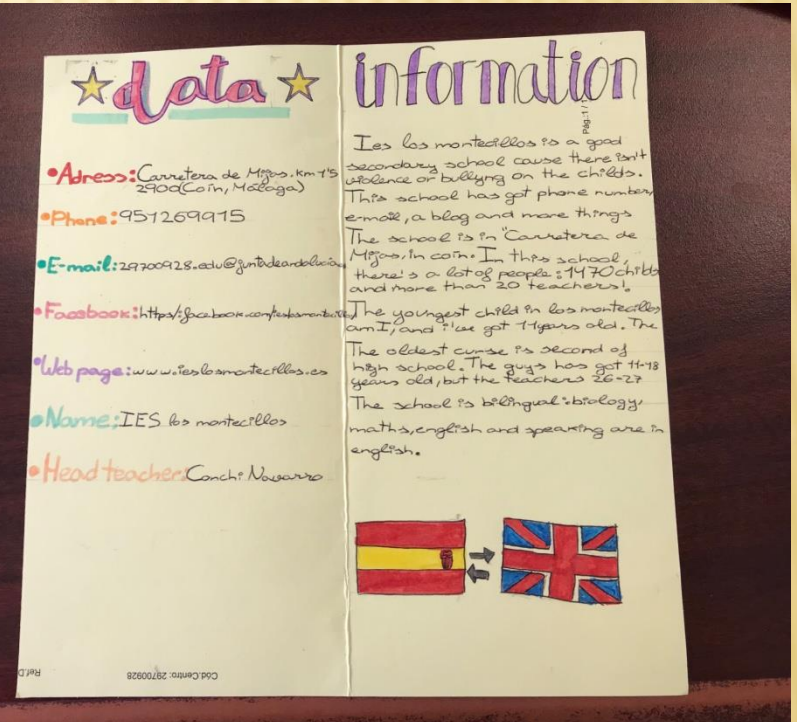 data
Adress: Carretera de Mijas. km 1'5
2900 (Coín, Málaga)
Phone: 951269915
E-mail: 29700928.edu@juntadeandalucia
Facebook: https/:facebook.com/ieslosmontecillos
Web page: www.ieslosmontecillos.es
Name: IES los montecillos
Head teacher: Conchi Navarro
Ref.D
Cód.Centro: 29700928
information
Pág.:1 / 1
Ies los montecillos is a good
secondary school cause there isn't
violence or bullyng on the childs.
This school has got phone number,
e-mail, a blog and more things
The school is in "Carretera de
Mijas, in coín. In this school,
there's a lot of people: 1470 childs
and more than 20 teachers!.
The youngest child in los montecillos
am I, and i've got 11 years old. The
The oldest curse is second of
high school. The guys has got 11-18
years old, but the teachers 26-27
The school is bilingual: biology,
maths, english and speaking are in
english.